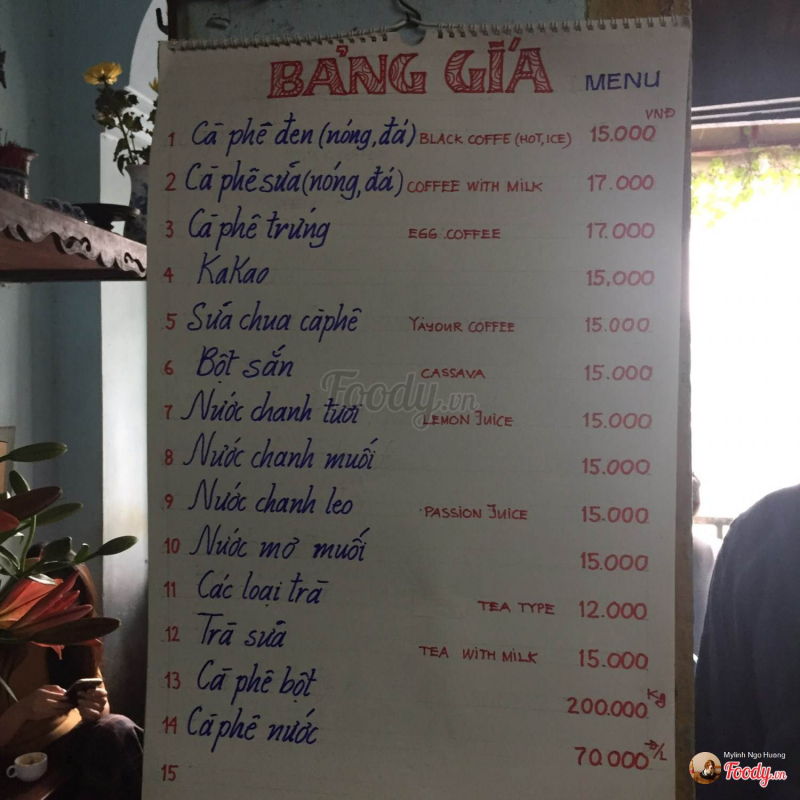 BẢNG GÍA MENU
VNĐ
1 Cà phê đen (nóng, đá) BLACK COFFE (HOT, ICE) 15.000
2 Cà phê sữa (nóng, đá) COFFEE WITH MILK 17.000
3 Cà phê trứng EGG COFFEE 17.000
4 KaKao 15,000
5 Sữa chua càphê YAYOUR COFFEE 15.000
6 Bột sắn CASSAVA 15.000
7 Nước chanh tươi LEMON JUICE 15.000
8 Nước chanh muối 15.000
9 Nước chanh leo PASSION JUICE 15.000
10 Nước mơ muối 15.000
11 Các loại trà TEA TYPE 12.000
12 Trà sữa TEA WITH MILK 15.000
13 Cà phê bột 200.000 Kg
14 Cà phê nước 70.000 đ/L
15
Foody.vn
Mylinh Ngo Huong
Foody.vn